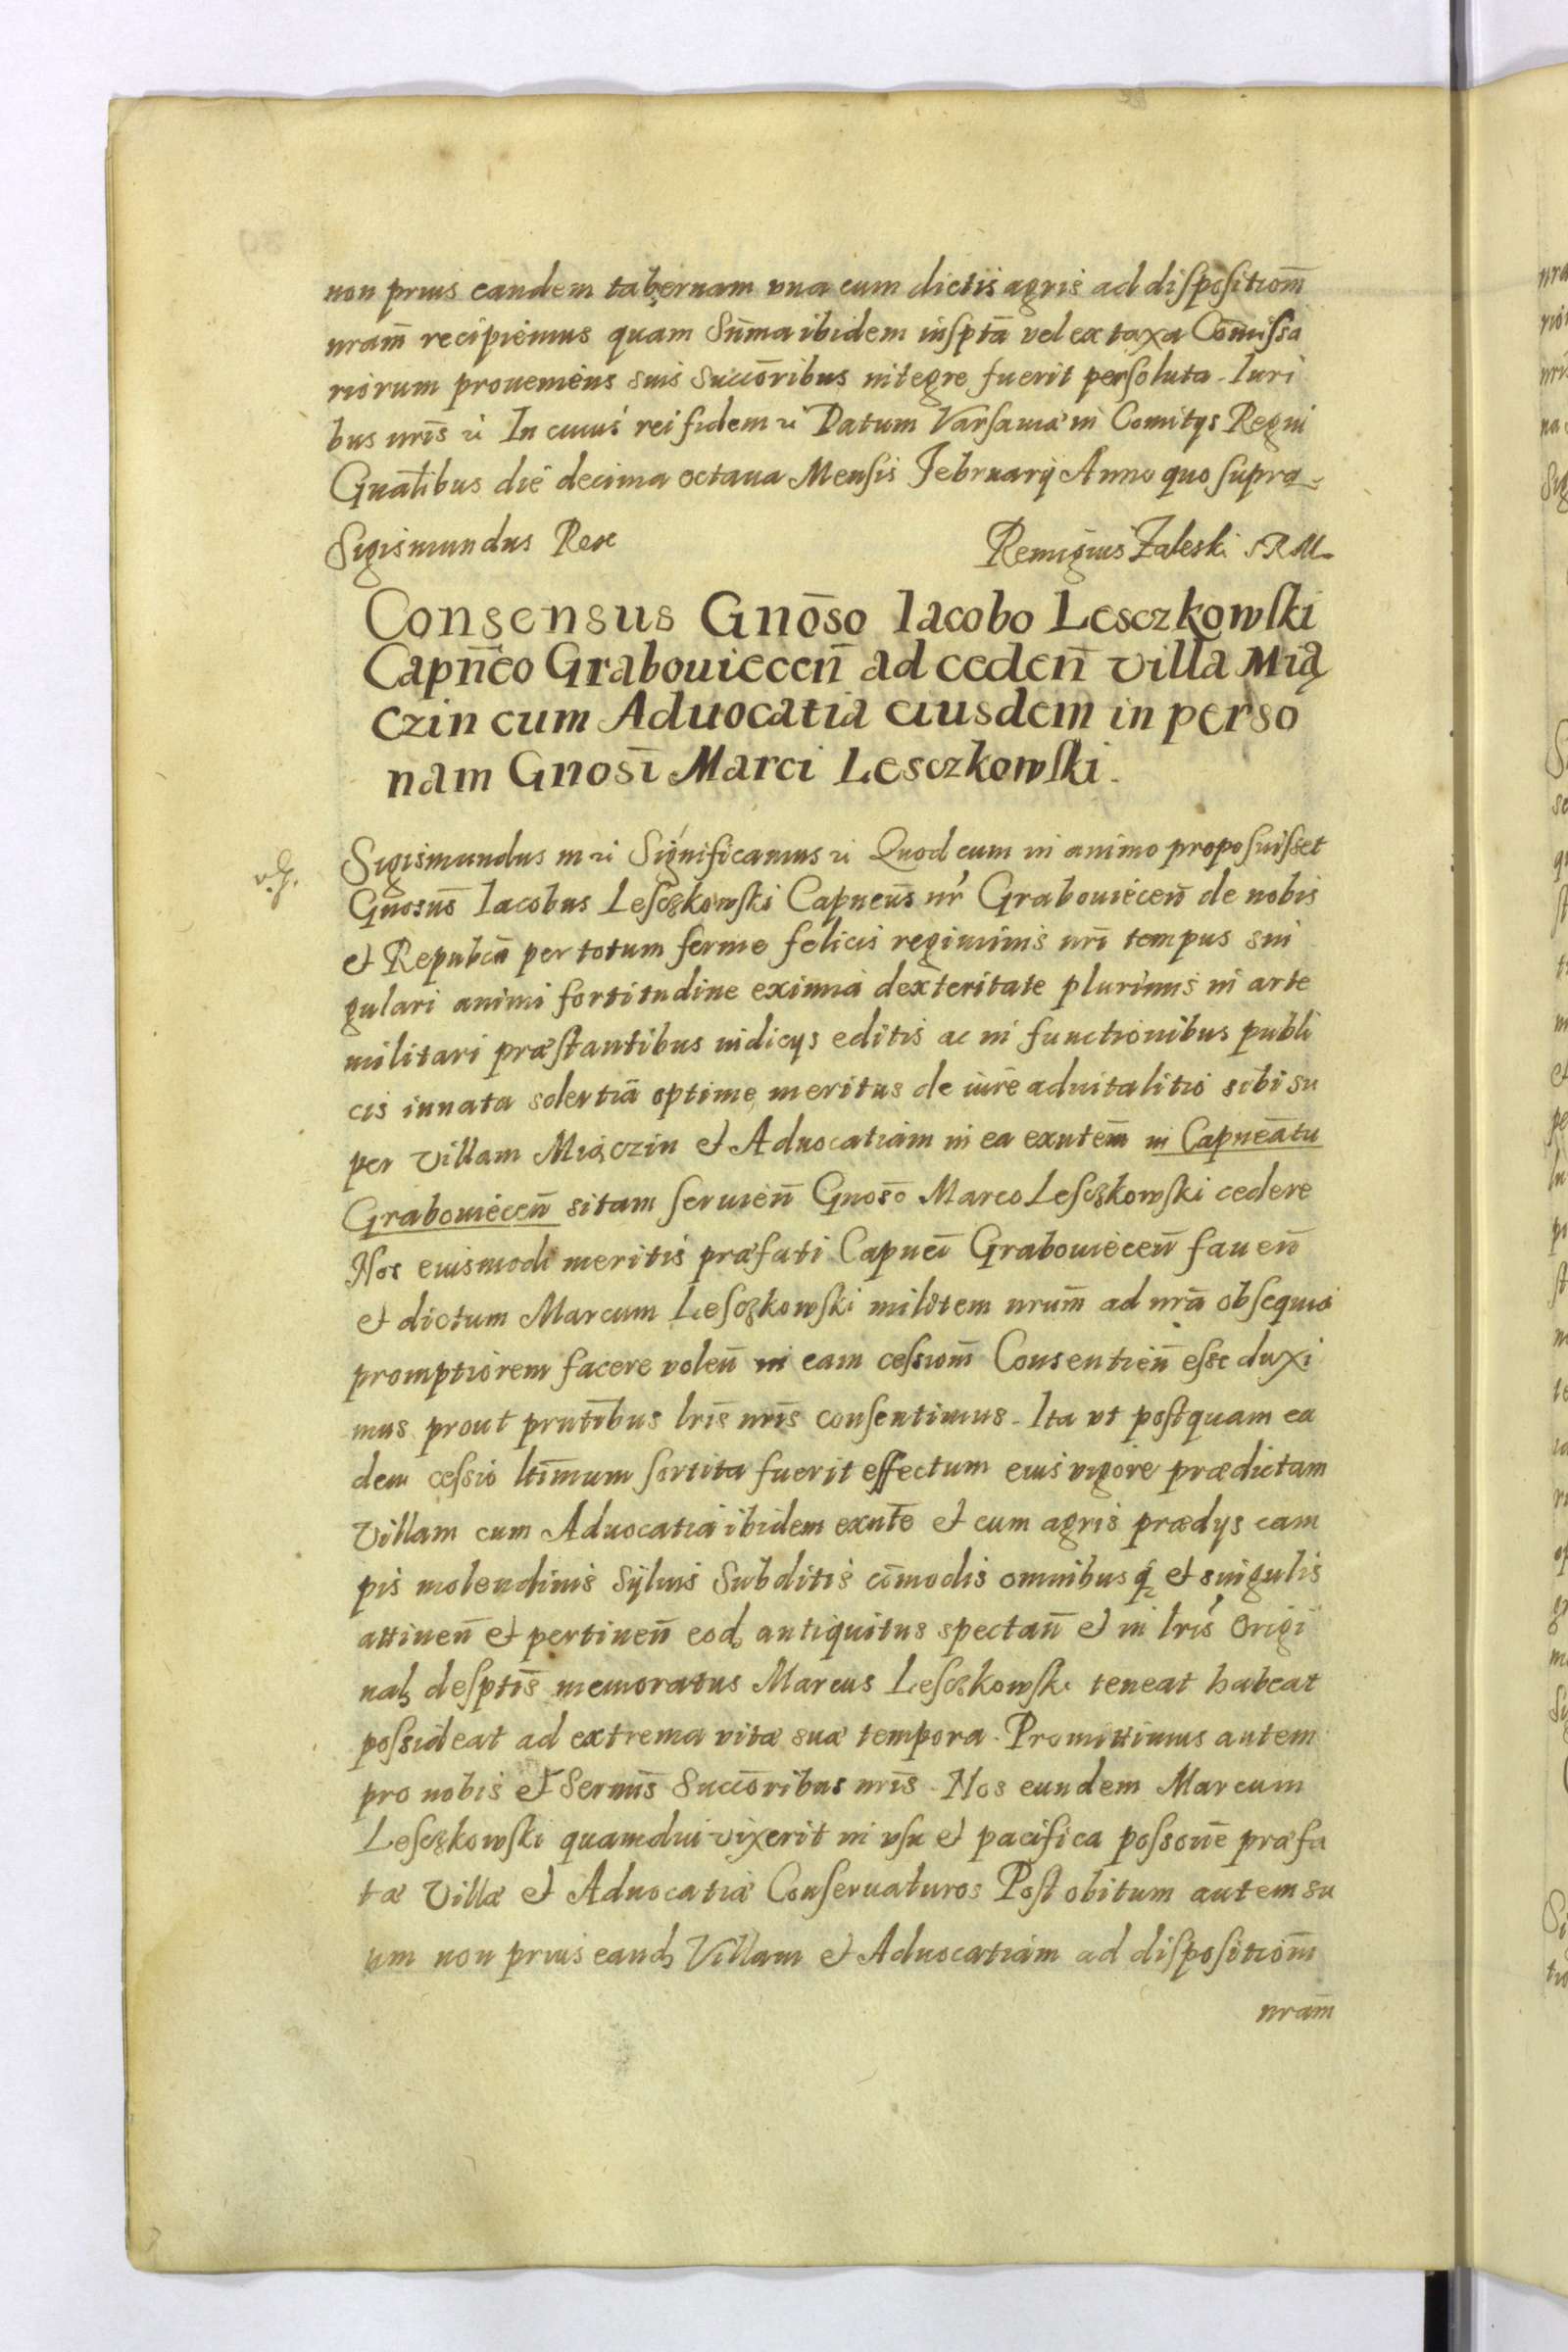 non prius eandem tabernam vna cum dictis agris ad dispositiom̄
nram̄ recipiemus quam Sum̄a ibidem inspta᷃ vel ex taxa Com̄issa
riorum proueniens suis Succo᷃ribus integre fuerit persoluta. Iuri
bus nris᷃ r̃i In cuius rei fidem r̃i Datum Varsauiæ in Comitijs Regni
Gnalibus die decima octaua Mensis Februarij Anno quo supra
Sigismundus Rex Remigius Zaleski SRM.
Consensus Gnōso Iacobo Lesczkowski
Capn̄eo Grabouiecen̄ ad ceden̄ villa Mią
czin cum Aduocatia eiusdem in perso
nam Gnosī Marci Lesczkowski.
Sigismundus III r̃i Significamus r̃i Quod cum in animo proposuisset
Gnosus̄ Iacobus Lesczkowski Capneus̄ nr̄ Grabouiecen̄ de nobis
et Repub̄ca per totum ferme felicis regiminis nrī tempus sin
gulari animi fortitudine eximia dexteritate plurimis in arte
militari præstantibus indicijs editis ac in functionibus publi
cis innata solertia optime meritus de iure aduitalitio sibi su
per villam Miączin et Aduocatiam in ea exntem̄ in Capneātu
Grabouiecen̄ sitam seruien̄ Gnosō Marco Lesczkowski cedere
Nos eiusmodi meritis præfati Capneī Grabouiecen̄ fauen̄
et dictum Marcum Lesczkowski militem nrum̄ ad nrā obsequia
promptiorem facere volen̄ in eam cessiom̄ Consentien̄ esse duxi
mus prout prntībus lrīs nrīs consentimus. Ita vt postquam ea
dem cessio ltīmum sortita fuerit effectum eius vigore prædictam
Villam cum Aduocatia ibidem exntē et cum agris prædijs cam
pis molendinis Syluis Subditis com̄odis omnibus q̨ et singulis
attinen̄ et pertinen̄ eod̨ antiquitus spectan̄ et in lrīs Origi
nal̨ desptīs memoratus Marcus Lesczkowski teneat habeat
possideat ad extrema vitæ suæ tempora. Promittimus autem
pro nobis et Sernīs Succōribus nrīs. Nos eundem Marcum
Lesczkowski quamdiu vixerit in vsu et pacifica possonē præfa
tæ Villæ et Aduocatiæ Conseruaturos Post obitum autem su
um non prius eand̨ Villam et Aduocatiam ad dispositiom̄
nram̄